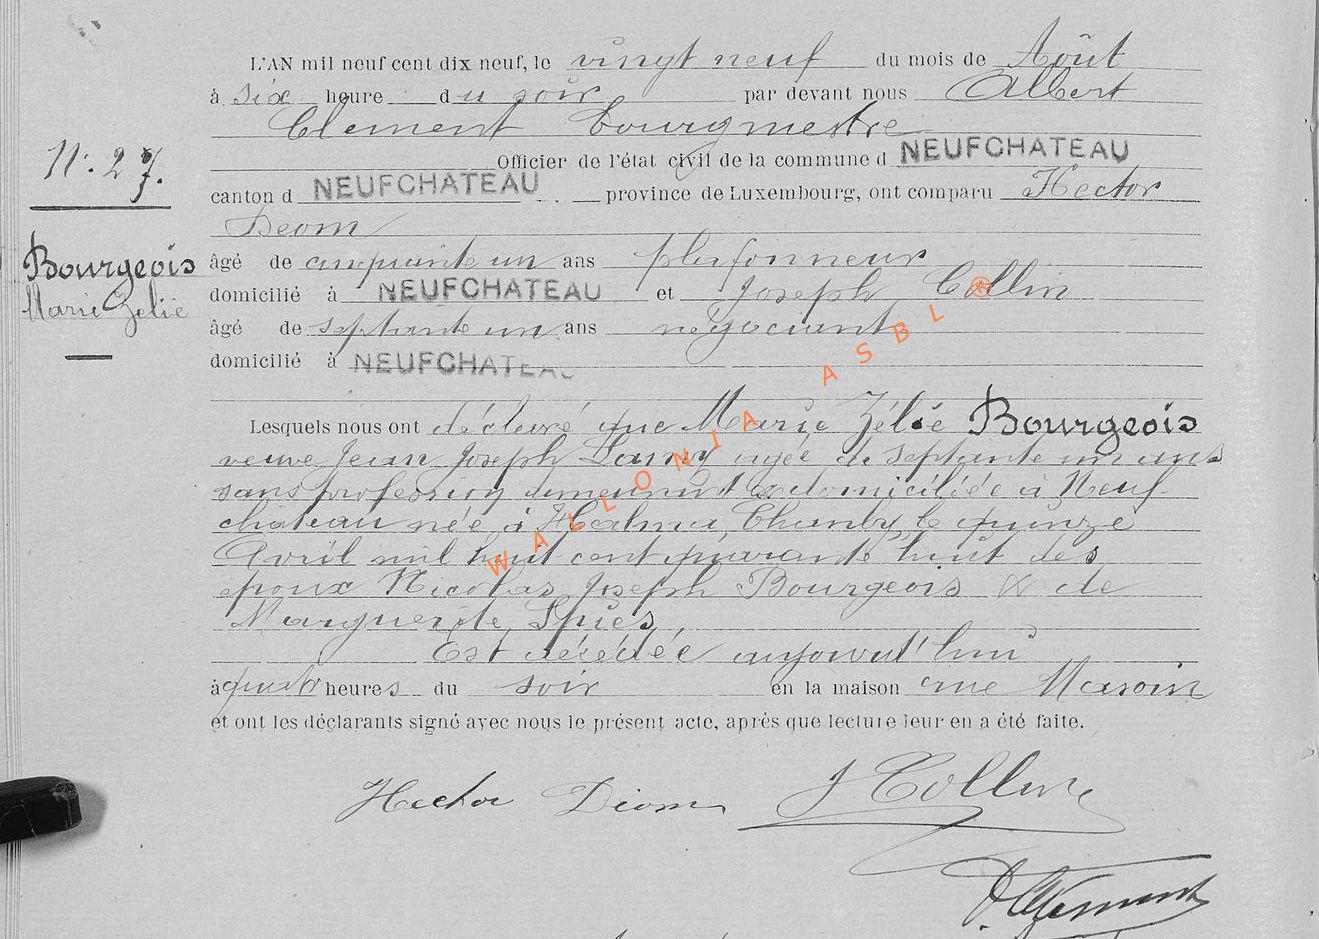 L'AN mil neuf cent dix neuf, le vingt neuf du mois de Août
à six heure du soir par devant nous Albert
Clement bourgmestre
Officier de l'état civil de la commune d NEUFCHATEAU
N: 27.
canton d NEUFCHATEAU province de Luxembourg, ont comparu Hector
Deom
Bourgeois
Marie Zélie
âgé de cinquante un ans plafonneur
domicilié à NEUFCHATEAU et Joseph Collin
âgé de septante un ans négociant
domicilié à NEUFCHATEAU
Lesquels nous ont déclaré que Marie Zélie Bourgeois
veuve Jean Joseph Lamy agée de septante un ans
sans profession demeurant & domiciliée à Neuf-
château née à Halma, Chanly, le quinze
Avril mil huit cent quarante huit des
époux Nicolas Joseph Bourgeois & de
Marguerite Spies
Est décédée aujourd'hui
à quatre heures du soir en la maison rue
et ont les déclarants signé avec nous le présent acte, après que lecture leur en a été faite.
Hector Diom J Collin
A Clement
WALLONIA ASBL ®